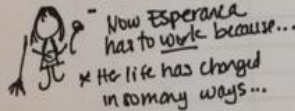 Now Esperanza
has to work because...
* Her life has changed
in so many ways...